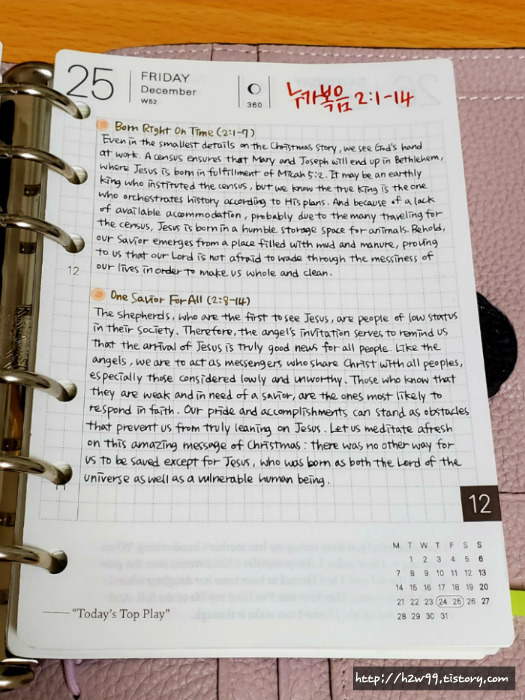 25
FRIDAY
December
W52
360
누가복음 2:1-14
Born Right On Time (2:1-7)
Even in the smallest details on the Christmas story, we see God's hand
at work. A census ensures that Mary and Joseph will end up in Bethlehem,
where Jesus is born in fulfillment of Micah 5:2. It may be an earthly
king who instituted the census, but we know the true King is the one
who orchestrates history according to His plans. And because of a lack
of available acommodation, probably due to the many traveling for
the census, Jesus is born in a humble storage space for animals. Behold,
our Savior emerges from a place filled with mud and manure, proving
to us that our Lord is not afraid to wade through the messiness of
our lives in order to make us whole and clean.
12
One Savior For All (2:8-14)
The shepherds, who are the first to see Jesus, are people of low status
in their society. Therefore, the angel's invitation serves to remind us
that the arrival of Jesus is truly good news for all people. Like the
angels, we are to act as messengers who share Christ with all peoples,
especially those considered lowly and unworthy. Those who know that
they are weak and in need of a savior, are the ones most likely to
respond in faith. Our pride and accomplishments can stand as obstacles
that prevent us from truly leaning on Jesus. Let us meditate afresh
on this amazing message of Christmas: there was no other way for
us to be saved except for Jesus, who was born as both the Lord of the
universe as well as a vulnerable human being.
12
M T W T F S S
1 2 3 4 5 6
7 8 9 10 11 12 13
14 15 16 17 18 19 20
21 22 23 24 25 26 27
28 29 30 31
"Today's Top Play"
http://h2w99.tistory.com